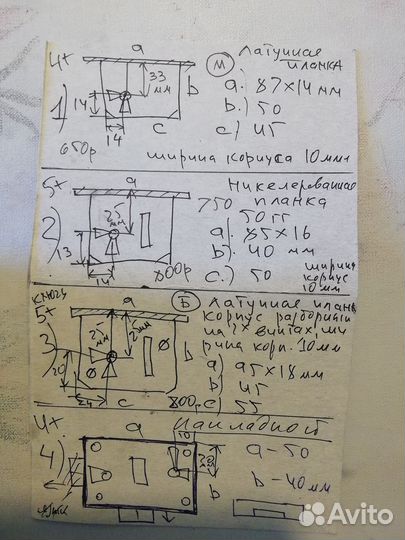 4+ a М Латунная
планка
33
мм
b
a. 87×14 мм
b.) 50
c) 45
1)
14
14
c
650р
ширина корпуса 10 мм
5+ a Никелерованная
750 планка
50 гг
2)
25
мм
a). 85×16
b). 40 мм
c.) 50
ширина
корпус
10 мм
13
14
800р
ключ
5+ a Б Латунная план
корпус разборный
на 2х винтах, ши
рина корп. 10 мм
3)
25
мм
25мм
b
a) 95×18 мм
b) 45
c) 55
20
24
c
800р
4+ a накладной
4)
10
20
мм
b
a-50
b-40мм
Avito